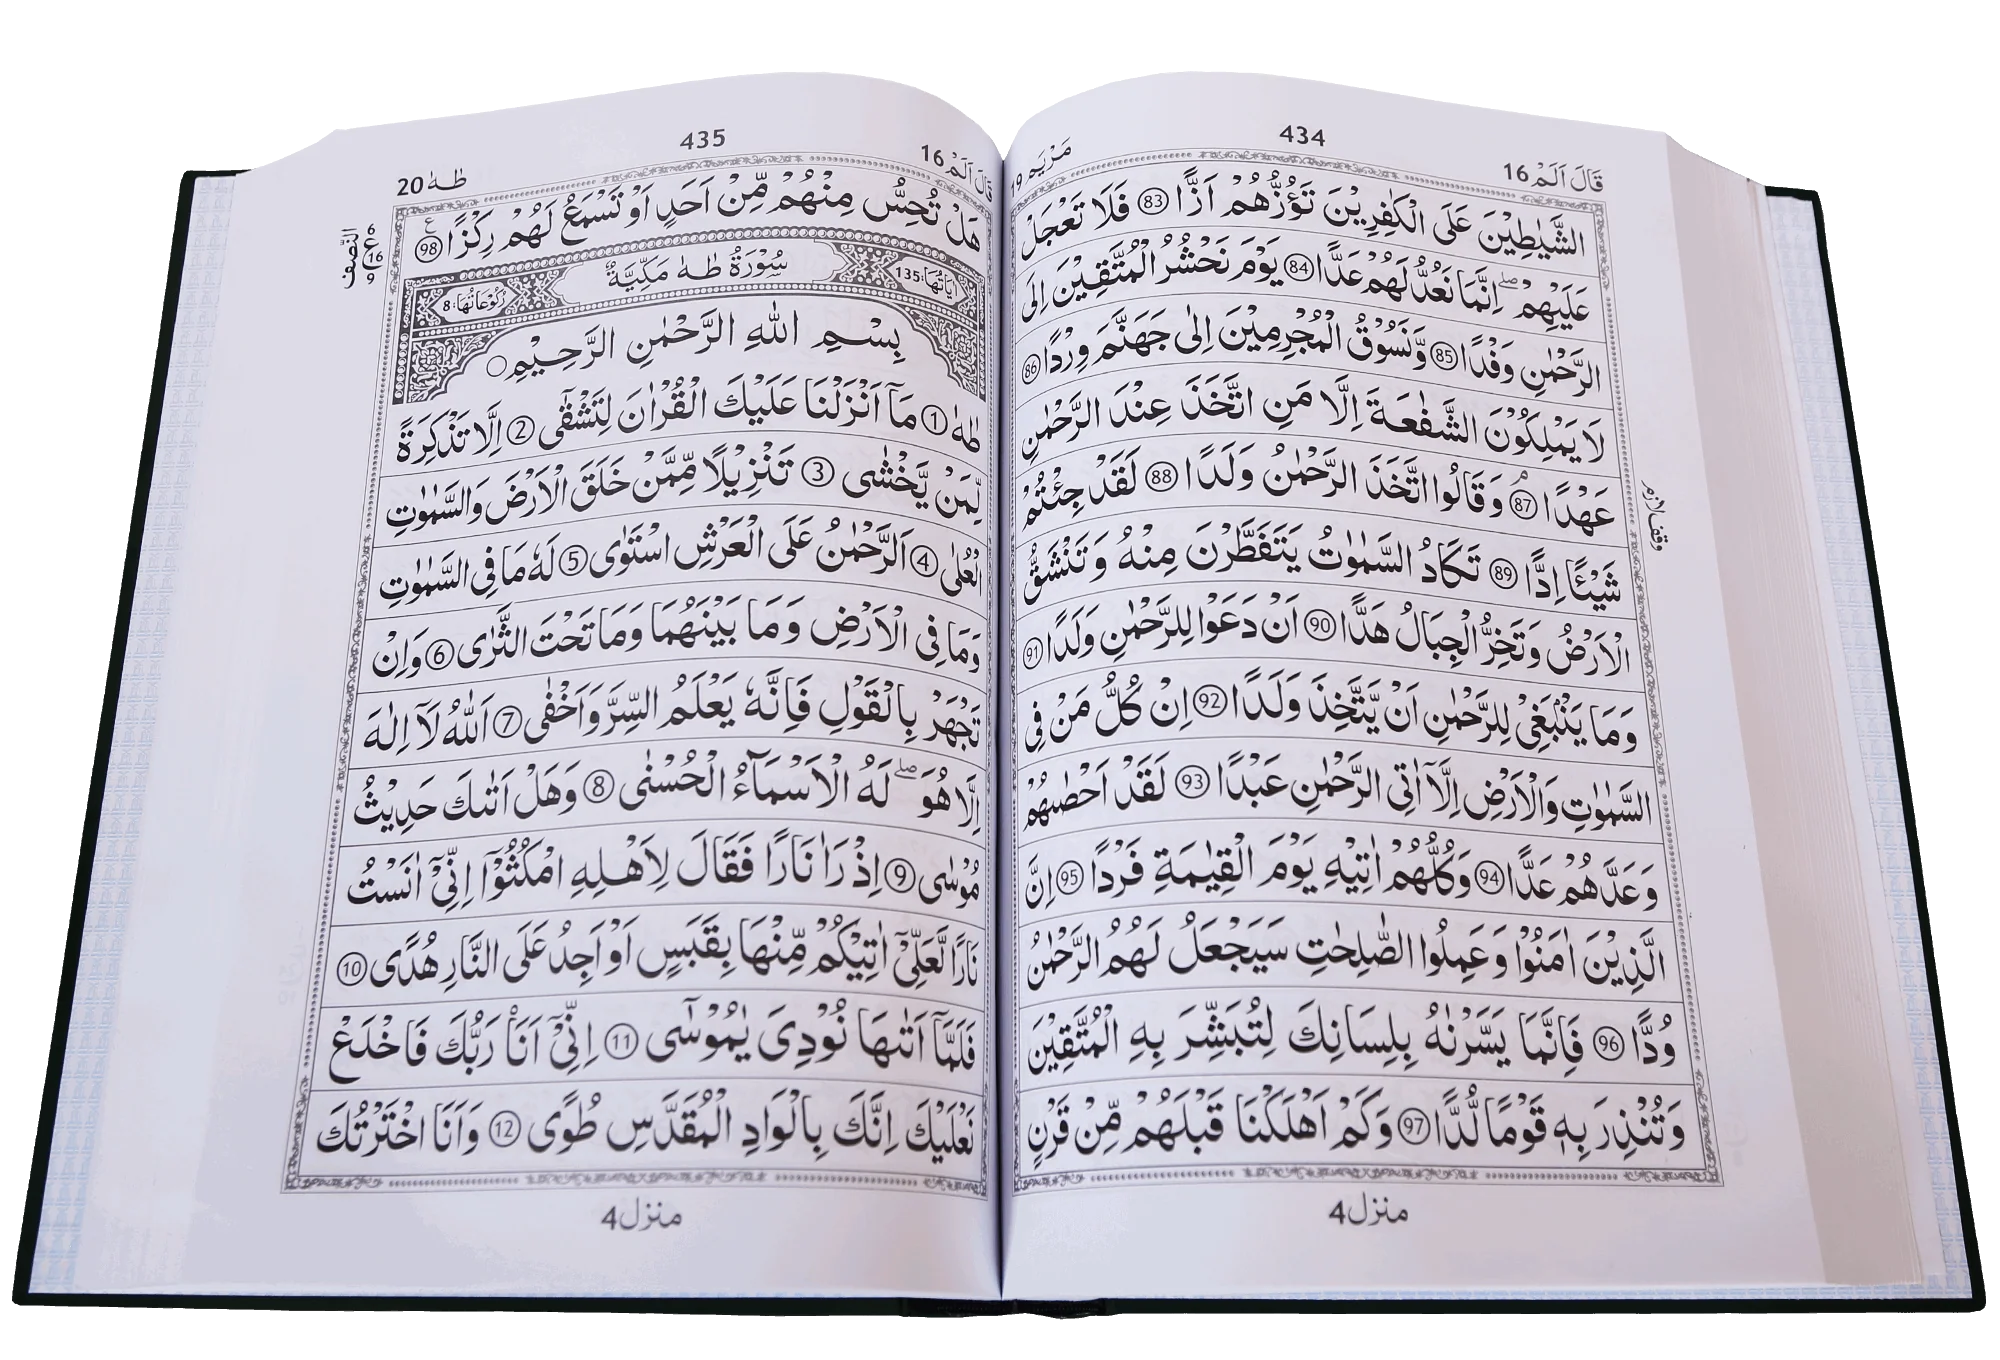 قَالَ اَلَمْ 16
434
مَرْيَم 19
الشَّيٰطِيْنَ عَلَى الْكٰفِرِيْنَ تَؤُزُّهُمْ اَزًّا 83 فَلَا تَعْجَلْ
عَلَيْهِمْ ۖ اِنَّمَا نَعُدُّ لَهُمْ عَدًّا 84 يَوْمَ نَحْشُرُ الْمُتَّقِيْنَ اِلَى
الرَّحْمٰنِ وَفْدًا 85 وَّنَسُوْقُ الْمُجْرِمِيْنَ اِلٰى جَهَنَّمَ وِرْدًا 86
لَا يَمْلِكُوْنَ الشَّفٰعَةَ اِلَّا مَنِ اتَّخَذَ عِنْدَ الرَّحْمٰنِ
عَهْدًا 87 ۘ وَقَالُوا اتَّخَذَ الرَّحْمٰنُ وَلَدًا 88 لَقَدْ جِئْتُمْ
وقف لازم
شَيْئًا اِدًّا 89 تَكَادُ السَّمٰوٰتُ يَتَفَطَّرْنَ مِنْهُ وَتَنْشَقُّ
الْاَرْضُ وَتَخِرُّ الْجِبَالُ هَدًّا 90 اَنْ دَعَوْا لِلرَّحْمٰنِ وَلَدًا 91
وَمَا يَنْۢبَغِيْ لِلرَّحْمٰنِ اَنْ يَّتَّخِذَ وَلَدًا 92 اِنْ كُلُّ مَنْ فِى
السَّمٰوٰتِ وَالْاَرْضِ اِلَّآ اٰتِى الرَّحْمٰنِ عَبْدًا 93 لَقَدْ اَحْصٰىهُمْ
وَعَدَّهُمْ عَدًّا 94 وَكُلُّهُمْ اٰتِيْهِ يَوْمَ الْقِيٰمَةِ فَرْدًا 95 اِنَّ
الَّذِيْنَ اٰمَنُوْا وَعَمِلُوا الصّٰلِحٰتِ سَيَجْعَلُ لَهُمُ الرَّحْمٰنُ
وُدًّا 96 فَاِنَّمَا يَسَّرْنٰهُ بِلِسَانِكَ لِتُبَشِّرَ بِهِ الْمُتَّقِيْنَ
وَتُنْذِرَ بِهٖ قَوْمًا لُّدًّا 97 وَكَمْ اَهْلَكْنَا قَبْلَهُمْ مِّنْ قَرْنٍ
منزل 4
قَالَ اَلَمْ 16
435
طٰهٰ 20
هَلْ تُحِسُّ مِنْهُمْ مِّنْ اَحَدٍ اَوْ تَسْمَعُ لَهُمْ رِكْزًا 98 ع
النِّصْف
ع 16
اٰيَاتُهَا: 135
سُوْرَةُ طٰهٰ مَكِّيَّةٌ
رُكُوْعَاتُهَا: 8
بِسْمِ اللّٰهِ الرَّحْمٰنِ الرَّحِيْمِ
طٰهٰ 1 مَآ اَنْزَلْنَا عَلَيْكَ الْقُرْاٰنَ لِتَشْقٰٓى 2 اِلَّا تَذْكِرَةً
لِّمَنْ يَّخْشٰى 3 تَنْزِيْلًا مِّمَّنْ خَلَقَ الْاَرْضَ وَالسَّمٰوٰتِ
الْعُلٰى 4 اَلرَّحْمٰنُ عَلَى الْعَرْشِ اسْتَوٰى 5 لَهٗ مَا فِى السَّمٰوٰتِ
وَمَا فِى الْاَرْضِ وَمَا بَيْنَهُمَا وَمَا تَحْتَ الثَّرٰى 6 وَاِنْ
تَجْهَرْ بِالْقَوْلِ فَاِنَّهٗ يَعْلَمُ السِّرَّ وَاَخْفٰى 7 اَللّٰهُ لَآ اِلٰهَ
اِلَّا هُوَ ۖ لَهُ الْاَسْمَآءُ الْحُسْنٰى 8 وَهَلْ اَتٰىكَ حَدِيْثُ
مُوْسٰى 9 اِذْ رَاٰ نَارًا فَقَالَ لِاَهْلِهِ امْكُثُوْٓا اِنِّيْٓ اٰنَسْتُ
نَارًا لَّعَلِّيْٓ اٰتِيْكُمْ مِّنْهَا بِقَبَسٍ اَوْ اَجِدُ عَلَى النَّارِ هُدًى 10
فَلَمَّآ اَتٰىهَا نُوْدِيَ يٰمُوْسٰٓى 11 اِنِّيْٓ اَنَا رَبُّكَ فَاخْلَعْ
نَعْلَيْكَ اِنَّكَ بِالْوَادِ الْمُقَدَّسِ طُوًى 12 وَاَنَا اخْتَرْتُكَ
منزل 4